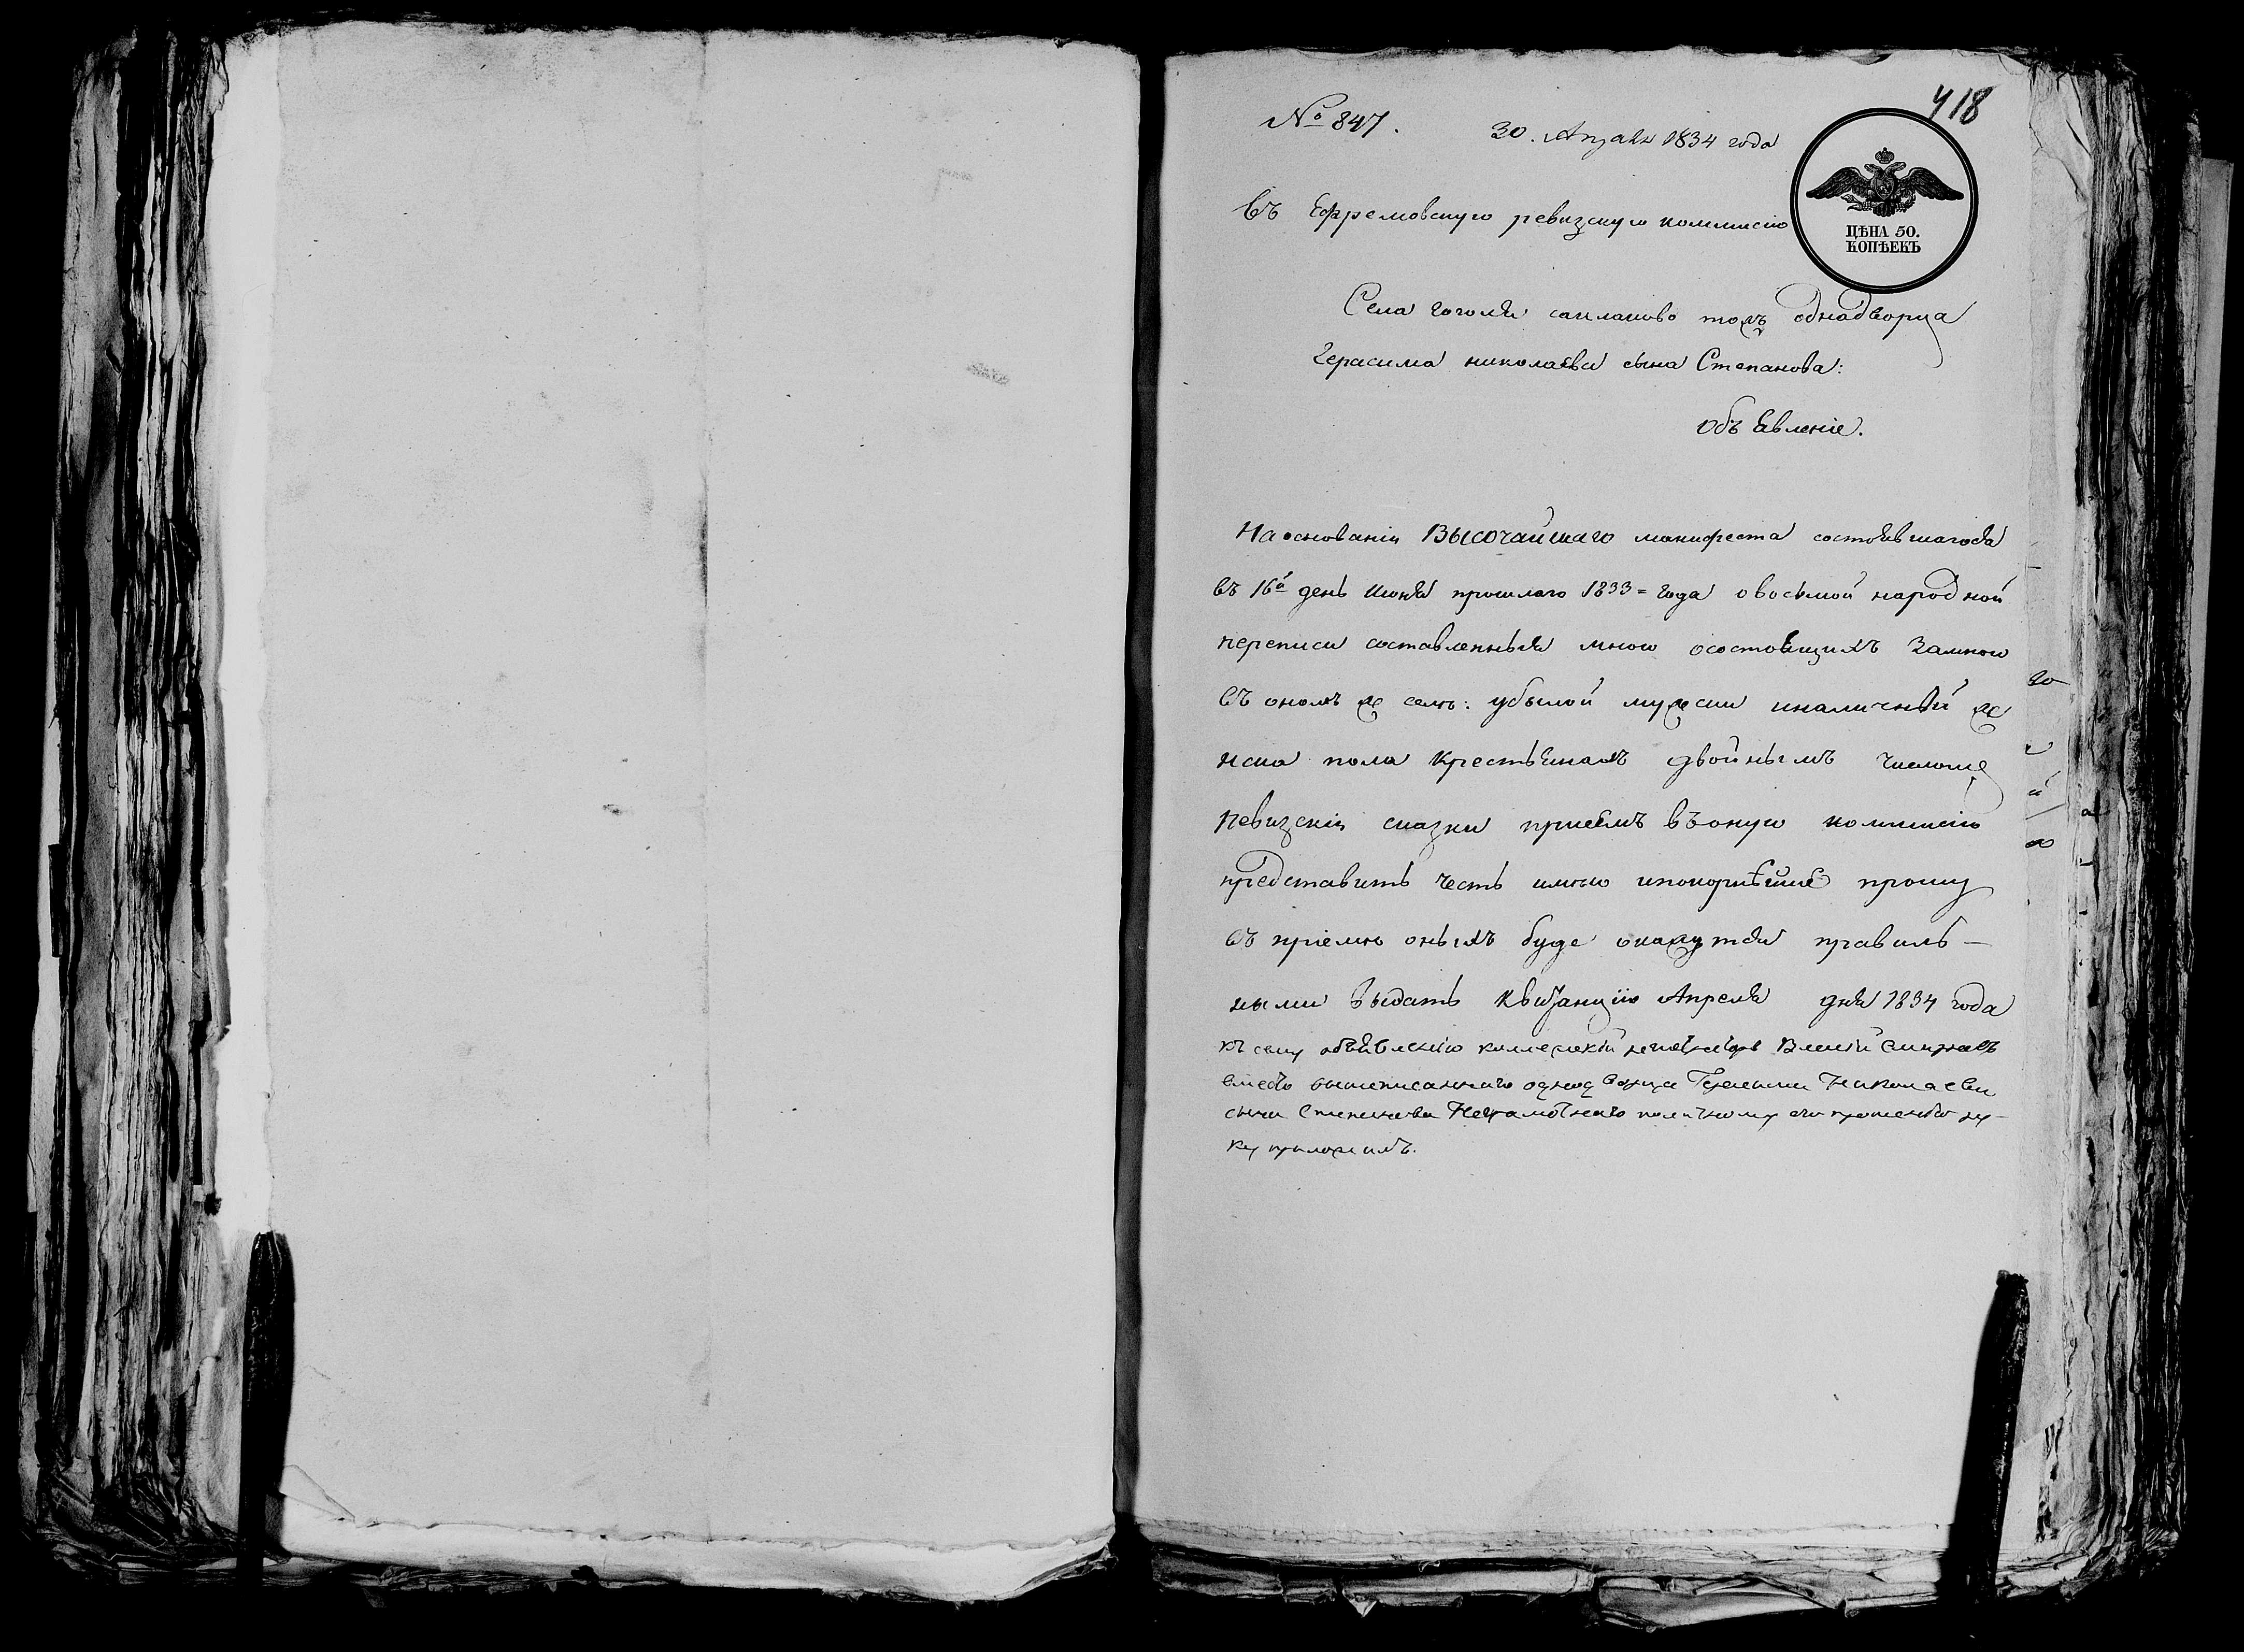 418
№ 847. 30. Апреля 1834 года
ЦѢНА 50.
КОПѢЕКЪ
Въ Ефремовскую ревизскую коммисию
Села гоголя сапланово тожъ однодворца
Герасима николаева сына Степанова:
Объявленіе.
На основаніи Высочаишаго манифеста состоявшагося
въ 16й день июня прошлаго 1833 = года о восьмой народной
переписи составленныя мною о состоящихъ замною
въ ономъ же селѣ: убылой мужеска иналичной же
нска пола крестьянахъ двойнымъ числомъ
Ревизскіи сказки приемъ въ оную коммисию
представить честь имѣю ипокорнѣйше прошу
въ приемѣ оныхъ буде окажутся правиль-
ными выдать квитанцію Апреля дня 1834 года
къ сему объявлению коллежский регистраторъ
вместо вышеписаннаго однодворца Герасима Николаева
сына Степанова Неграмотнаго поличному его прошению ру-
ку приложилъ.